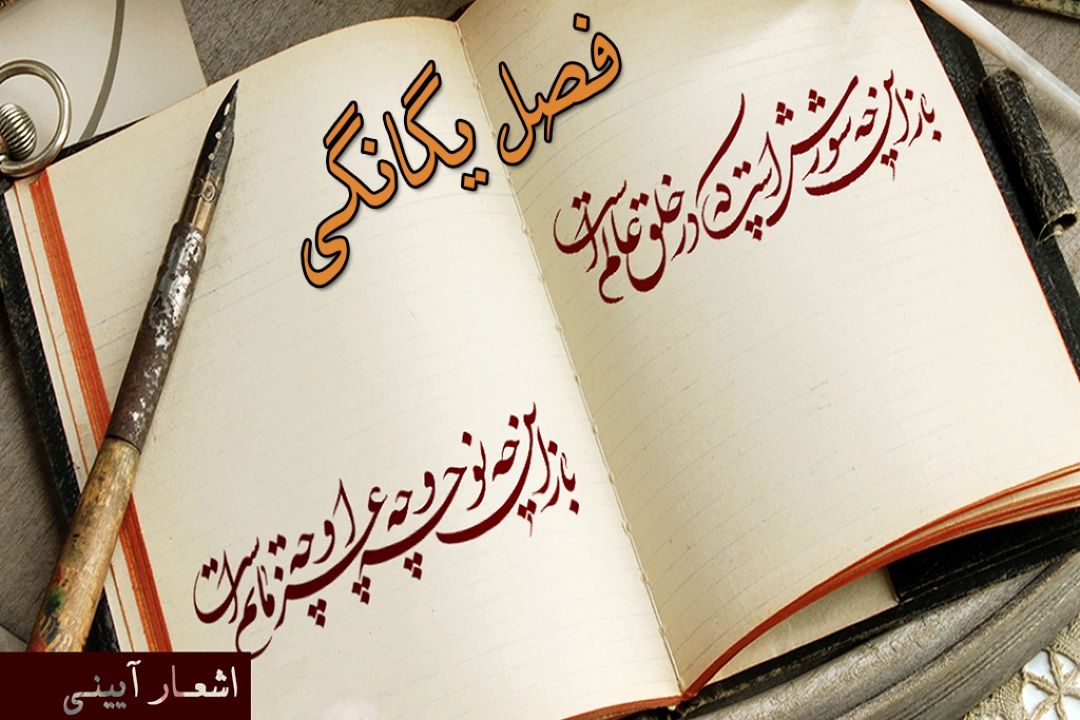 فصل یگانگی
باز این چه شورش است که در خلق عالم است
باز این چه نوحه و چه عزا و چه ماتم است
اشعار آیینی